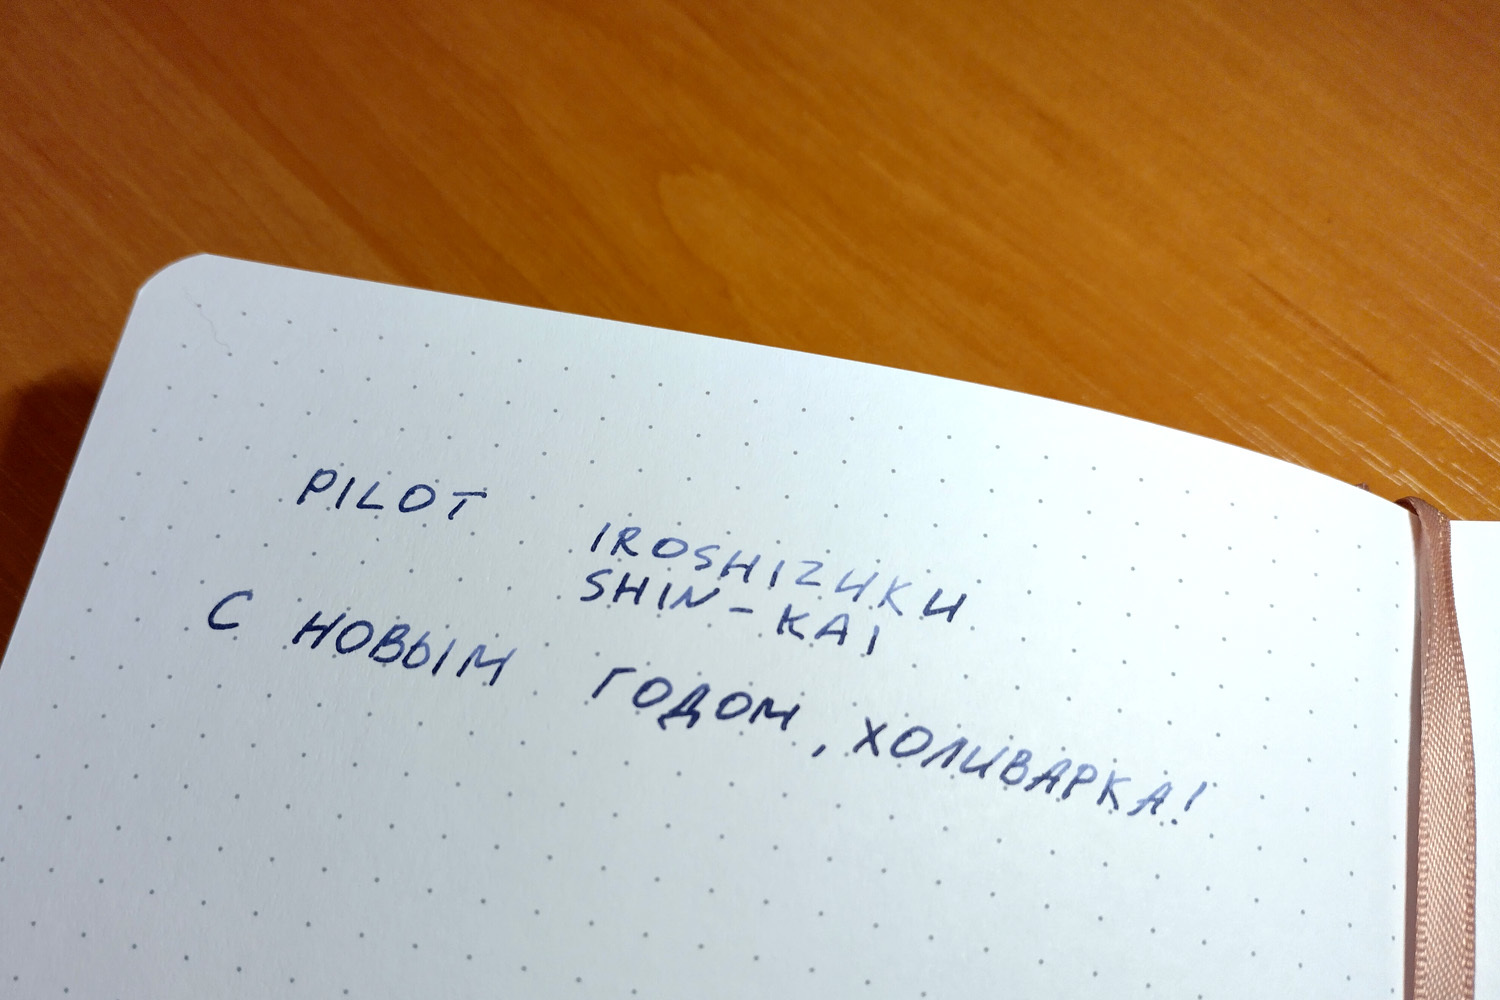 PILOT IROSHIZUKU
SHIN-KAI
С НОВЫМ ГОДОМ, ХОЛИВАРКА!